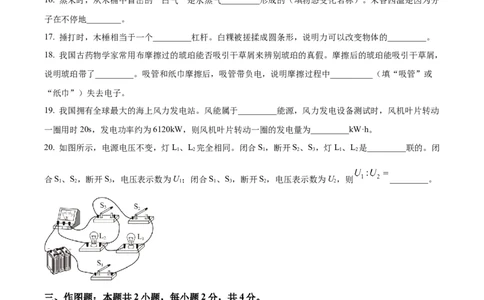 16. 蒸米时，从木桶中冒出的“白气”是水蒸气________形成的（填物态变化名称）。米香四溢是因为分
子在不停地________。
17. 捶打时，木棰相当于一个________杠杆。白粿被搓揉成圆条形，说明力可以改变物体的________。
18. 我国古药物学家常用布摩擦过的琥珀能否吸引干草屑来辨别琥珀的真假。摩擦后的琥珀能吸引干草屑，
说明琥珀带了________。吸管和纸巾摩擦后，吸管带负电，说明摩擦过程中________（填“吸管”或
“纸巾”）失去电子。
19. 我国拥有全球最大的海上风力发电站。风能属于________能源，风力发电设备测试时，风机叶片转动
一圈用时20s，发电功率约为6120kW，则风机叶片转动一圈的发电量为________kW·h。
20. 如图所示，电源电压不变，灯L₁、L₂完全相同。闭合S₁，断开S₂、S₃，灯L₁、L₂是________联的。闭
合S₁、S₂，断开S₃，电压表示数为U₁；闭合S₁、S₃，断开S₂，电压表示数为U₂，则 U₁:U₂ = ________。
S₂
S₃
L₂
L₁
S₁
三、作图题：本题共2小题，每小题2分，共4分。